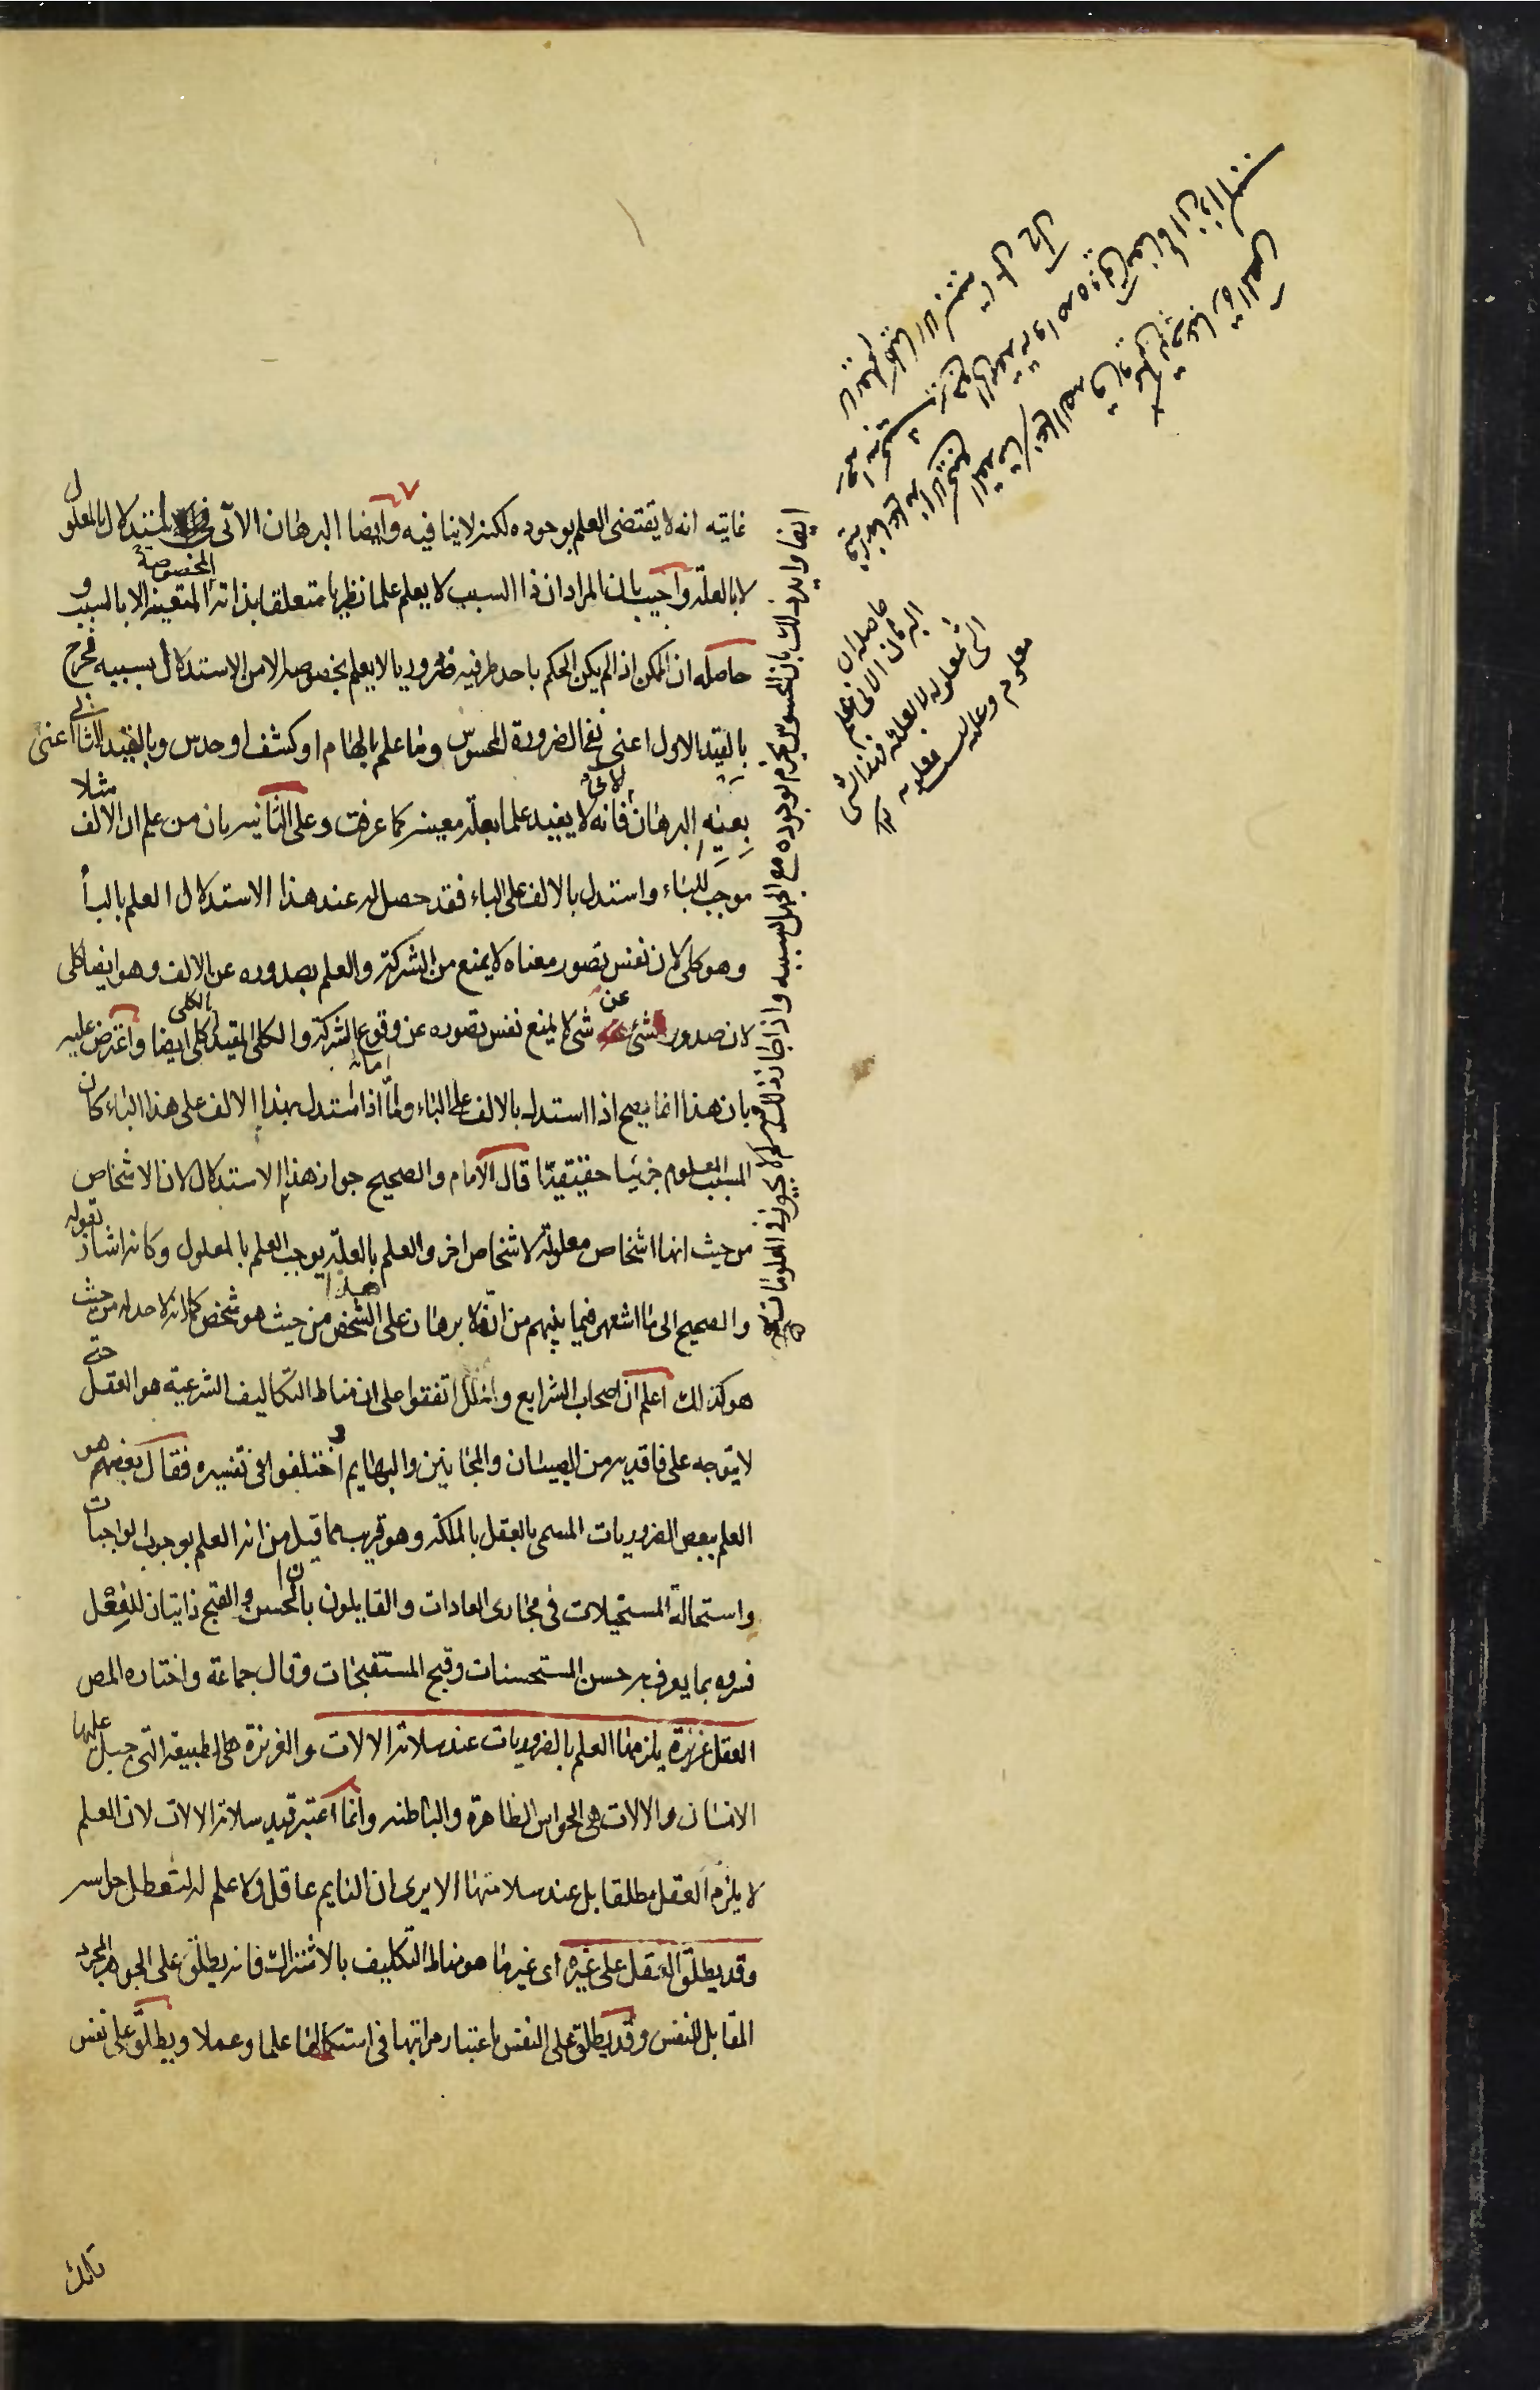 غايته انه لا يقتضى العلم بوجوده لكنه لا ينافيه وايضا البرهان الانّى استدلال بالمعلول
لا بالعلة واجيب بان المراد ان ذا السبب لا يعلم علما نظريا متعلقا بذاته المتعينة المخصوصة الا بالسبب و
حاصله ان الممكن اذا لم يكن الحكم باحد طرفيه ضروريا لا يعلم بخصوصه الا من الاستدلال بسببه فخرج
بالقيد الاول اعنى نفى الضرورة المحسوس وما علم بالهام او كشف او حدس وبالقيد الثانى اعنى
بعينه البرهان الانى فانه لا يفيد علما بعلة معينة كما عرفت وعلى الثانية بان من علم ان الالف مثلا
موجب للباء واستدل بالالف على الباء فقد حصل له عند هذا الاستدلال العلم بالبا
وهو كلى لان نفس تصور معناه لا يمنع من الشركة والعلم بصدوره عن الالف وهو ايضا كلى
لان صدور الشئ عن شئ لا يمنع نفس تصوره عن وقوع الشركة والكلى المقيد بالكلى كلى ايضا واعترض عليه
بان هذا انما يصح اذا استدل بالالف على الباء واما اذا استدل بهذا الالف على هذا الباء كان
المسبب المعلوم جزئيا حقيقيا قال الامام والصحيح جواز هذا الاستدلال لان الاشخاص
من حيث انها اشخاص معلولة لاشخاص اخر والعلم بالعلة يوجب العلم بالمعلول وكانه اشار بقوله
والصحيح الى ما اشتهر فيما بينهم من انه لا برهان على هذا الشخص من حيث هو شخص كما انه لا حد له من حيث
هو كذلك اعلم ان اصحاب الشرايع والملل اتفقوا على ان مناط التكاليف الشرعية هو العقل حتى
لا يتوجه على فاقديه من الصبيان والمجانين والبهايم و اختلفوا فى تفسيره فقال بعضهم هو
العلم ببعض الضروريات المسمى بالعقل بالملكة وهو قريب مما قيل من انه العلم بوجوب الواجبات
واستحالة المستحيلات فى مجارى العادات والقايلون بان الحسن والقبح ذاتيان للفعل
فسروه بما يعرف به حسن المستحسنات وقبح المستقبحات وقال جماعة واختاره المص
العقل غريزة يلزمها العلم بالضروريات عند سلامة الالات والغريزة هى الطبيعة التى جبل عليها
الانسان والالات هى الحواس الظاهرة والباطنة وانما اعتبر قيد سلامة الالات لان العلم
لا يلزم العقل مطلقا بل عند سلامتها الا يرى ان النايم عاقل ولا علم له لتعطل حواسه
وقد يطلق العقل على غيره اى غير ما هو مناط التكليف بالاشتراك فانه يطلق على الجوهر المجرد
المقابل للنفس وقد يطلق على النفس باعتبار مراتبها فى استكمالها علما وعملا ويطلق على نفس
تلك
ايضا وايد ذلك بان المحسوس يجزم بوجوده مع الجهل بسببه واذا جاز ذلك فلم لا يجوز فى المعلومات
حاصله ان
البرهان الانى علم
الشئ بمعلوله لا بعلته فهذا الشئ
معلوم وعلته ليست معلومة